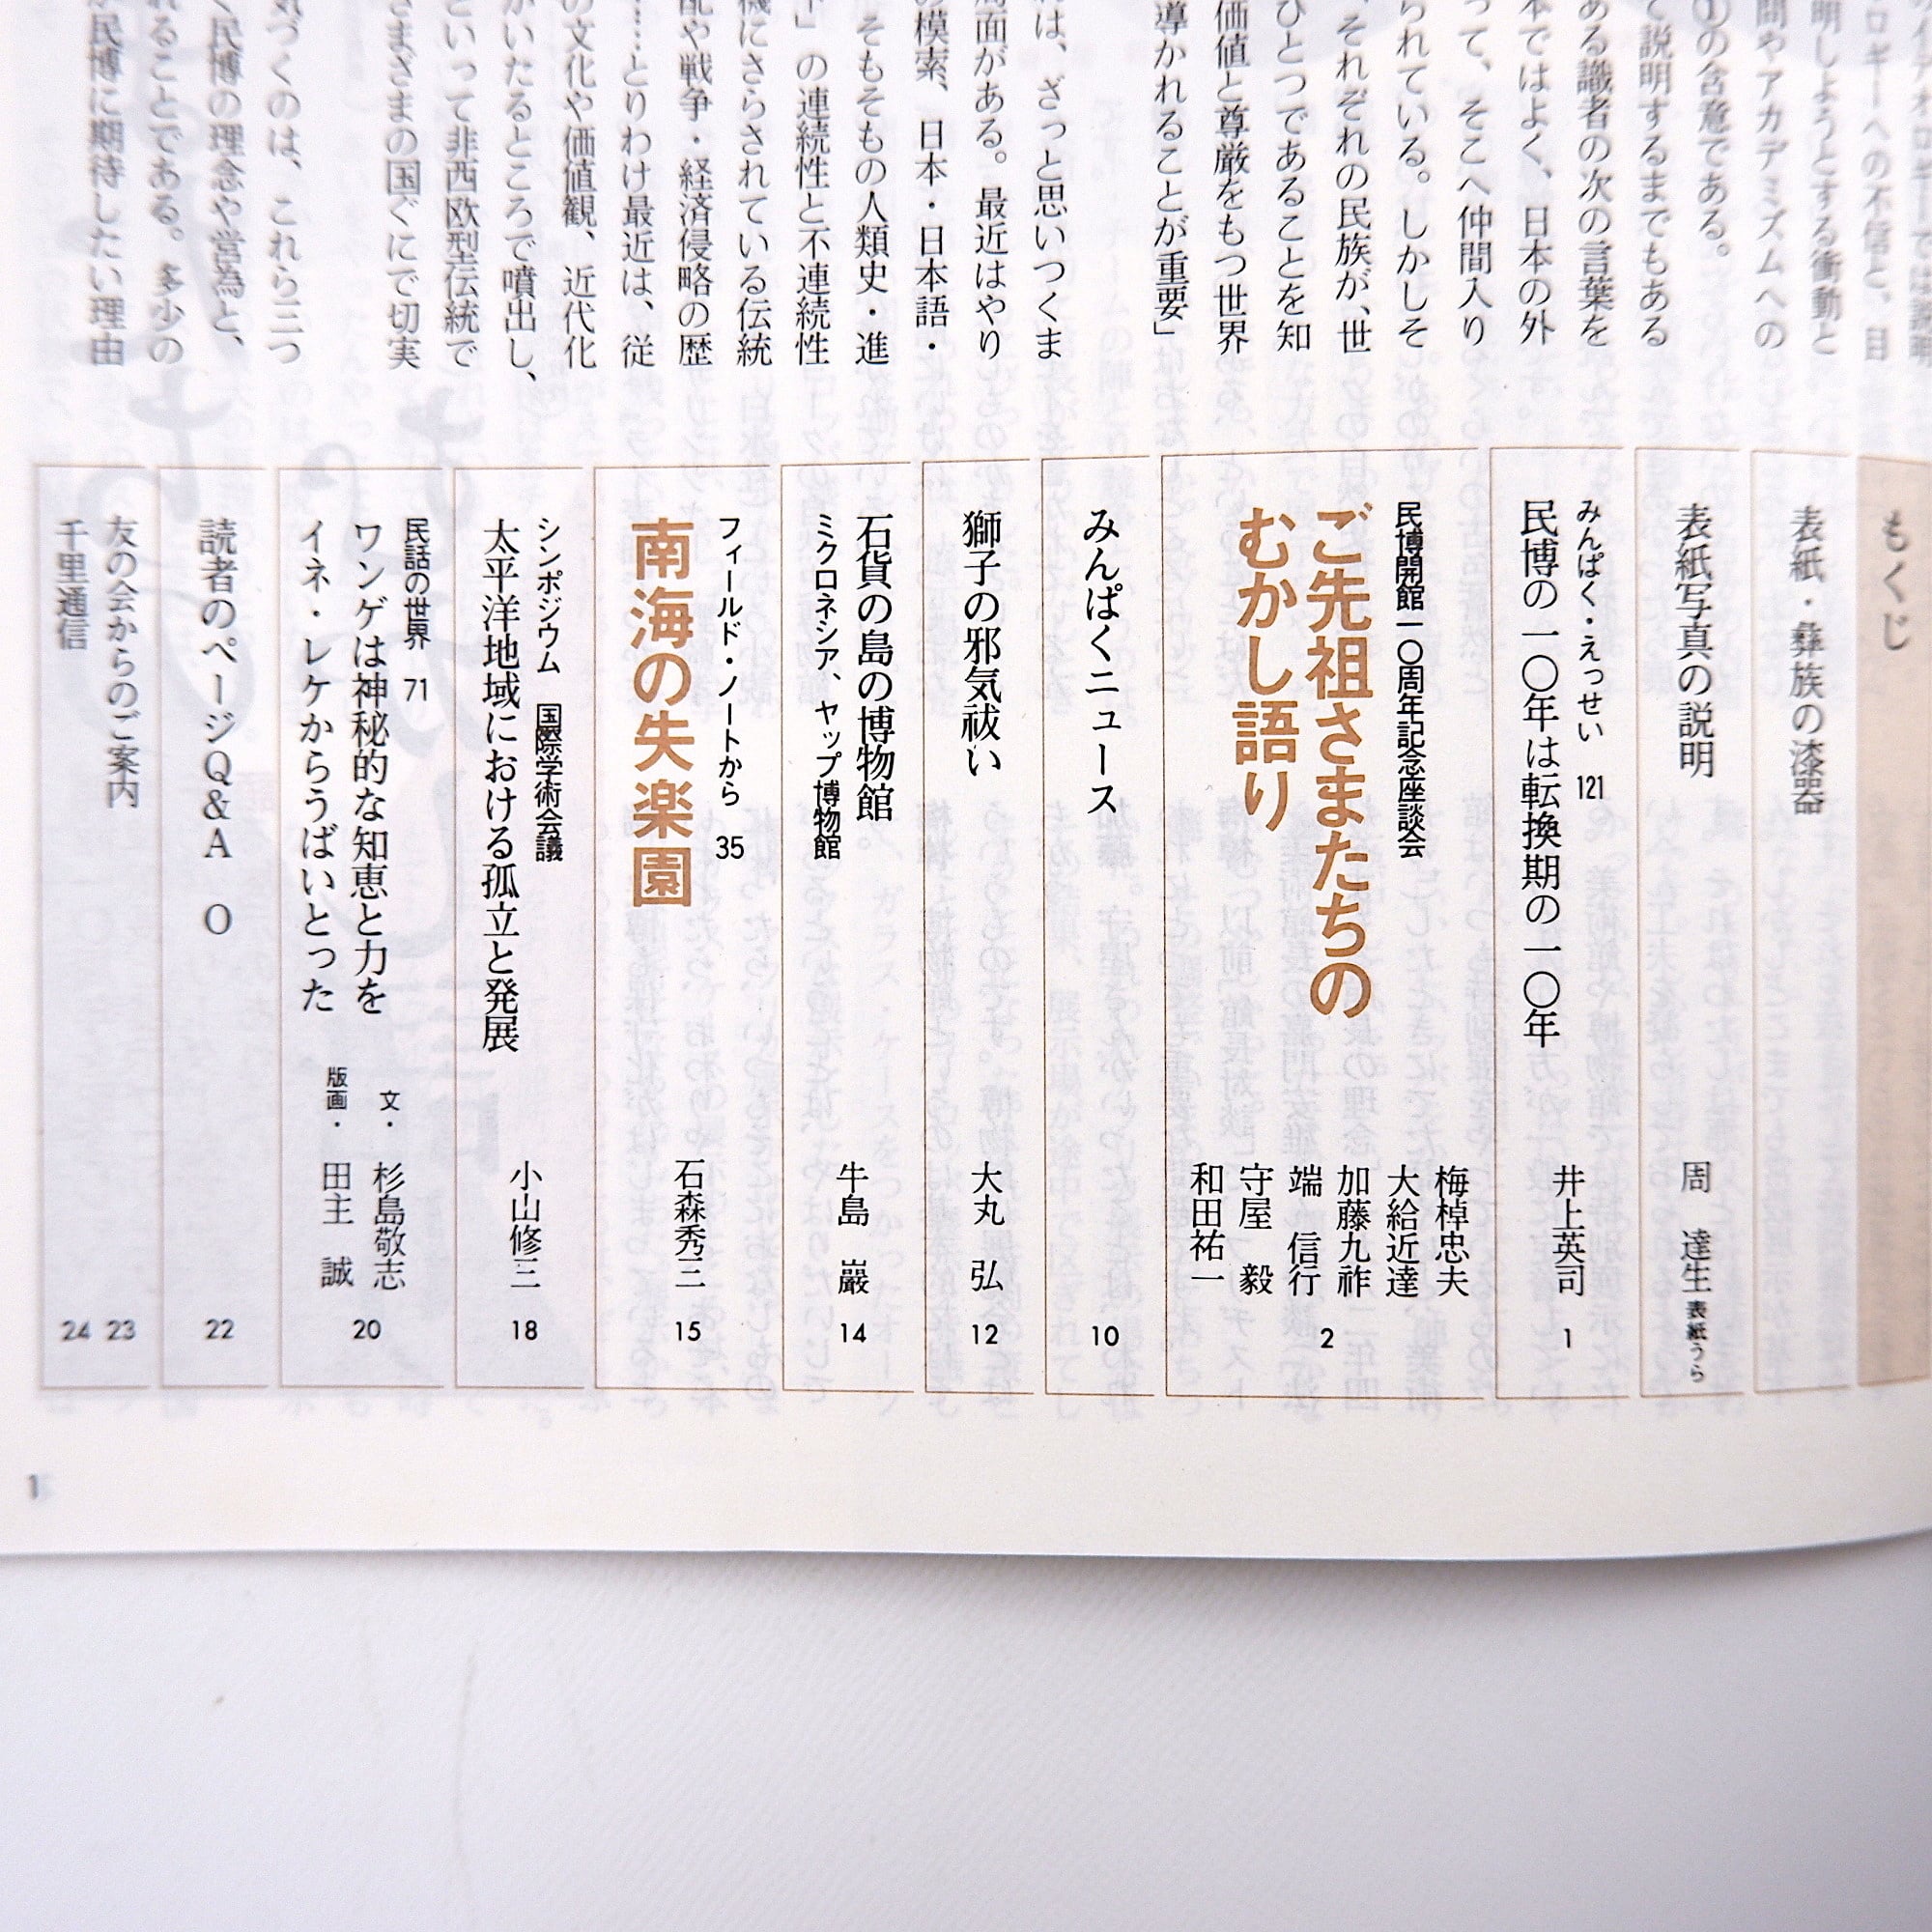 ロギーへの不信と、目
明しようとする衝動と
問やアカデミズムへの
の含意である。
て説明するまでもある
ある識者の次の言葉を
本ではよく、日本の外
って、そこへ仲間入り
られている。しかしそ
それぞれの民族が、世
ひとつであることを知
価値と尊厳をもつ世界
導かれることが重要」
は、ざっと思いつくま
面がある。最近はやり
模索、日本・日本語・
そもそもの人類史・進
」の連続性と不連続性
機にさらされている伝統
配や戦争・経済侵略の歴
……とりわけ最近は、従
の文化や価値観、近代化
かいたるところで噴出し、
といって非西欧型伝統で
さまざまの国ぐにで切実
気づくのは、これら三つ
く民博の理念や営為と、
れることである。多少の
が民博に期待したい理由
もくじ
表紙・彝族の漆器
表紙写真の説明 周 達生 表紙うら
みんぱく・えっせい 121
民博の一〇年は転換期の一〇年 井上英司 1
民博開館一〇周年記念座談会
ご先祖さまたちの
むかし語り
梅棹忠夫
大給近達
加藤九祚
端 信行
守屋 毅
和田祐一
2
みんぱくニュース 10
獅子の邪気祓い 大丸 弘 12
石貨の島の博物館
ミクロネシア、ヤップ博物館
牛島 巖 14
フィールド・ノートから 35
南海の失楽園 石森秀三 15
シンポジウム 国際学術会議
太平洋地域における孤立と発展 小山修三 18
民話の世界 71
ワンゲは神秘的な知恵と力を
イネ・レケからうばいとった
文・ 杉島敬志
版画・ 田主 誠
20
読者のページQ&A O 22
友の会からのご案内 23
千里通信 24
1